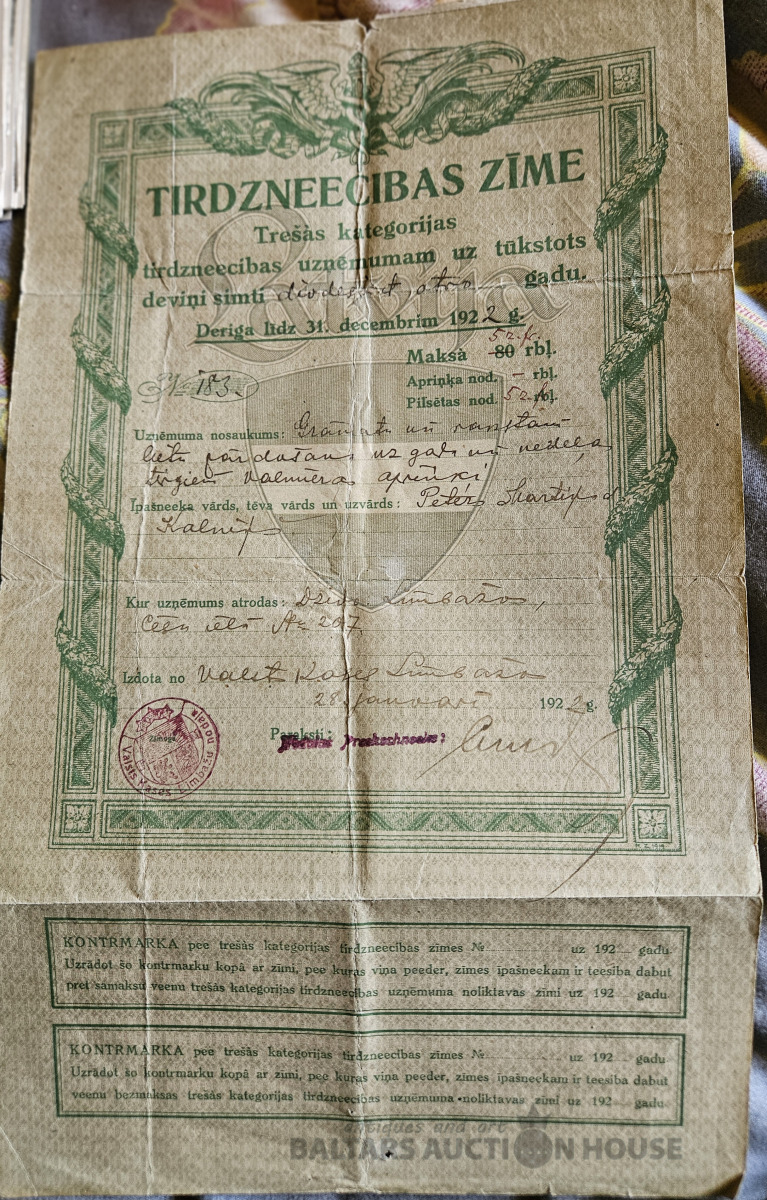 TIRDZNEECIBAS ZĪME
Trešās kategorijas
tirdzneecibas uzņēmumam uz tūkstots
deviņi simti divdesmit otro gadu.
Derīga līdz 31. decembrim 1922 g.
Maksā 80 rbļ.
№ 183.
Apriņķa nod. — rbļ.
Pilsētas nod. 52 rbļ.
Uzņēmuma nosaukums: Grāmatu un rakstām
lietu pārdošana uz gada un nedeļa
tirgiem Valmieras apriņķī
Īpašneeka vārds, tēva vārds un uzvārds: Pēters Martiņa d
Kalniņš
Kur uzņēmums atrodas: Dzīvo Limbažos,
Cēsu ielā № 207.
Izdota no Valsts Kases Limbažu
28. janvarī 1922 g.
Paraksti: Preekschneeks:
Valsts Kases Limbažu nodaļa
Zīmogs
KONTRMARKA pee trešās kategorijas tirdzneecibas zīmes № uz 192 gadu.
Uzrādot šo kontrmarku kopā ar zīmi, pee kuras viņa peeder, zīmes īpašneekam ir teesiba dabut
pret samaksu veenu trešās kategorijas tirdzneecibas uzņēmuma noliktavas zīmi uz 192 gadu.
KONTRMARKA pee trešās kategorijas tirdzneecibas zīmes № uz 192 gadu
Uzrādot šo kontrmarku kopā ar zīmi, pee kuras viņa peeder, zīmes īpašneekam ir teesiba dabut
veenu bezmaksas trešās kategorijas tirdzneecibas uzņēmuma noliktavas zīmi uz 192 gadu.
antiques and art
BALTARS AUCTION HOUSE